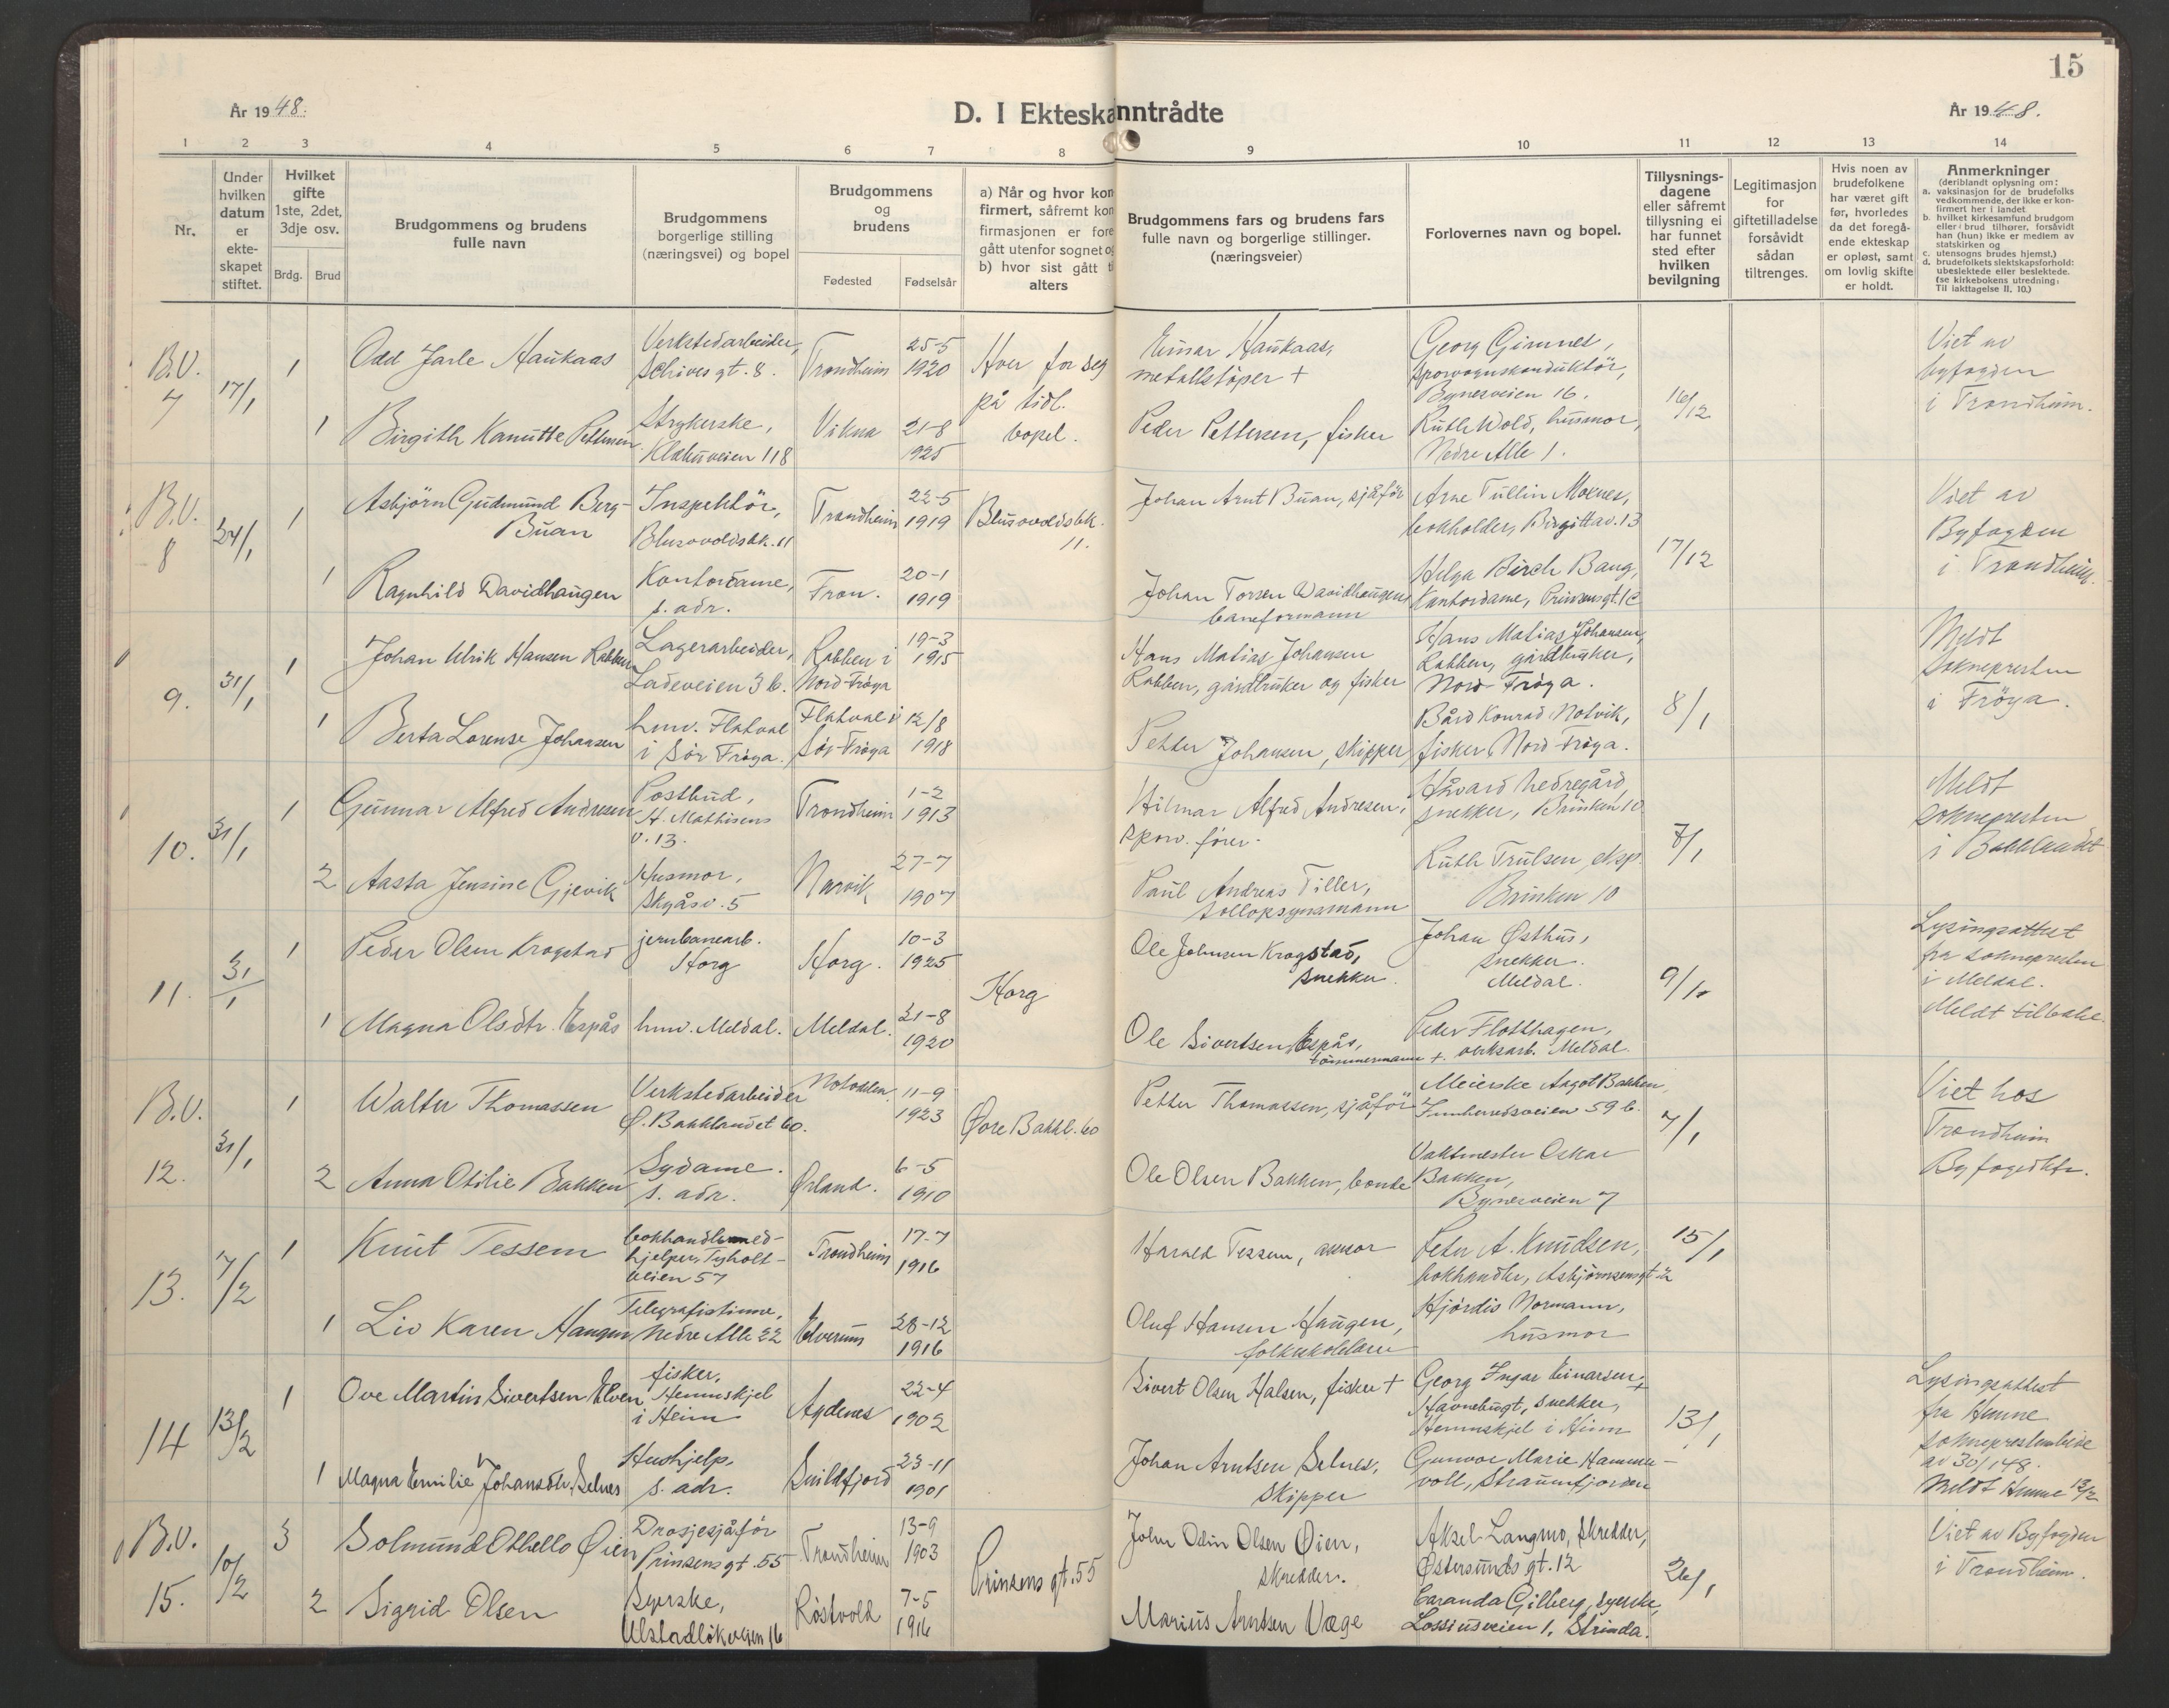 15
År 1948.
D. I Ekteskanntrådte
År 1948.
1 2 3 4 5 6 7 8 9 10 11 12 13 14
Nr.
Under hvilken datum er ekte-skapet stiftet.
Hvilket gifte 1ste, 2det, 3dje osv.
Brdg. Brud
Brudgommens og brudens fulle navn
Brudgommens borgerlige stilling (næringsvei) og bopel
Brudgommens og brudens
Fødested Fødselsår
a) Når og hvor kon
firmert, såfremt kon
firmasjonen er fore
gått utenfor sognet og
b) hvor sist gått t
alters
Brudgommens fars og brudens fars
fulle navn og borgerlige stillinger.
(næringsveier)
Forlovernes navn og bopel.
Tillysnings-dagene
eller såfremt
tillysning ei
har funnet
sted efter
hvilken
bevilgning
Legitimasjon
for
giftetilladelse
forsåvidt
sådan
tiltrenges.
Hvis noen av
brudefolkene
har været gift
før, hvorledes
da det foregå-
ende ekteskap
er opløst, samt
om lovlig skifte
er holdt.
Anmerkninger
(deriblandt oplysning om:
a. vaksinasjon for de brudefolks
vedkommende, der ikke er kon-
firmert her i landet
b. hvilket kirkesamfund brudgom
eller brud tilhører, forsåvidt
han (hun) ikke er medlem av
statskirken og
c. utensogns brudes hjemst.)
d. brudefolkets slektskapsforhold:
ubeslektede eller beslektede.
(se kirkebokens utredning:
Til iakttagelse II. 10.)
B.V. 7 17/1
1 Odd Jarle Haukaas
Verkstedarbeider, Schives gt. 8.
Trondheim 25-5 1920
Hver for seg på tidl. bopel.
Einar Haukaas, metallstøper +
Georg Gimnes, sporvognskonduktör, Bynesveien 16.
16/12
Viet av byfogden i Trondheim.
1 Birgith Kanutte Pettersen
Strykerske, Klæbuveien 118
Vikna 21-8 1925
Peder Pettersen, fisker
Ruth Wold, husmor, Nedre Alle 1.
B.V. 8 24/1
1 Asbjörn Gudmund Berg-Buan
Inspektör, Blusuvoldsbk. 11
Trondheim 22-5 1919
Blusuvoldsbk. 11.
Johan Arnt Buan, sjåfør
Arne Tullin Moenes, bokholder, Birgittav. 13
17/12
Viet av Byfogden i Trondheim.
1 Ragnhild Davidhaugen
Kontordame, s. adr.
Fron. 20-1 1919
Johan Torsen Davidhaugen, baneformann
Helga Birch Bang, Kontordame, Prinsensgt. 1c
9. 31/1
1 Johan Ulrik Hansen Rabben
Lagerarbeider, Ladeveien 3 b.
Rabben i Nord-Frøya 19-3 1915
Hans Matias Johansen Rabben, gårdbruker og fisker
Hans Matias Johansen, Rabben, gårdbruker, Nord-Frøya.
8/1
Meldt soknepresten i Fröya.
1 Berta Lorense Johansen
hmv. Flatval i Sör Fröya.
Flatval i Sör-Frøya 12/8 1918
Petter Johansen, skipper
Bård Konrad Notvik, fisker Nord-Frøya.
10. 31/1
1 Gunnar Alfred Andresen
Postbud, St. Mathisens v. 13.
Trondheim 1-2 1913
Hilmar Alfred Andresen, sporv. fører.
Håvard Nedregård snekker, Brinken 10
8/1
Meldt soknepresten i Bakklandet
2 Aasta Jensine Gjevik
Husmor, Skyåsv. 5
Narvik 27-7 1907
Paul Andreas Tiller, tollopsynsmann
Ruth Trulsen, eksp. Brinken 10
11. 31/1
1 Peder Olsen Krogstad
jernbanearb. Horg
Horg. 10-3 1925
Horg
Ole Johnsen Krogstad, snekker.
Johan Østhus, snekker. Meldal.
9/10
Lysingsattest fra soknepresten i Meldal. Meldt tilbake.
1 Magna Olsdtr. Espås
hmv. Meldal.
Meldal. 21-8 1920
Ole Sivertsen Espås, tömmermann +.
Peder Flotthagen, verksarb. Meldal.
B.V. 12. 31/1
1 Walter Thomassen
Verkstedarbeider Ø. Bakklandet 60.
Notodden. 11-9 1923
Øvre Bakkl. 60
Petter Thomassen, sjåför
Meierske Aagot Bakken, Innherredsveien 59 b.
7/1
Viet hos Trondheim Byfogdktr.
2 Anna Otilie Bakken
Sydame. s. adr.
Ørland. 6-5 1910
Ole Olsen Bakken, bonde
Vaktmester Oskar Bakken, Bynesveien 7
13. 7/2
1 Knut Tessem
bokhandlermed-hjelper, Tyholt-veien 57
Trondheim 17-7 1916
Harald Tessem, assessor
Peter A. Knudsen, bokhandler, Asbjørnsensgt
15/1
1 Liv Karen Haugen
Telegrafistinne, Nedre Alle 22
Elverum 28-12 1916
Oluf Hansen Haugen, folkeskolelærer
Hjördis Normann, husmor
14 13/2
1 Ove Martin Sivertsen Elven
fisker, Hemnskjel i Heim
Agdenes 22-4 1902
Sivert Olsen Halsen, fisker +
Georg Ingar Einarsen, Havnebugt, snekker, Hemnskjel i Heim
13/1
Lysingsattest fra Hemne sokneprestembede av 30/1 48. Meldt Hemne 13/2
1 Magna Emilie Johansdtr. Selnes
Hushjelp, s. adr.
Snildfjord 23-11 1901
Johan Arntsen Selnes, skipper
Gunvor Marie Hammer-voll, Straumfjorden
B.V. 15. 10/2
3 Solmund Othello Øien
Drosjesjåför Prinsens gt. 55
Trondheim 13-9 1903
Prinsens gt. 55
John Odin Olsen Øien, skredder.
Aksel Langmo, skredder, Østersunds gt. 12
26/1
Viet av Byfogden i Trondheim.
2 Sigrid Olsen
Syerske, Ulstadløkveien 16
Röstvold 7-5 1916
Marius Arntsen Væge
Caranda Gilberg, syerske, Lossiusveien 1, Strinda.